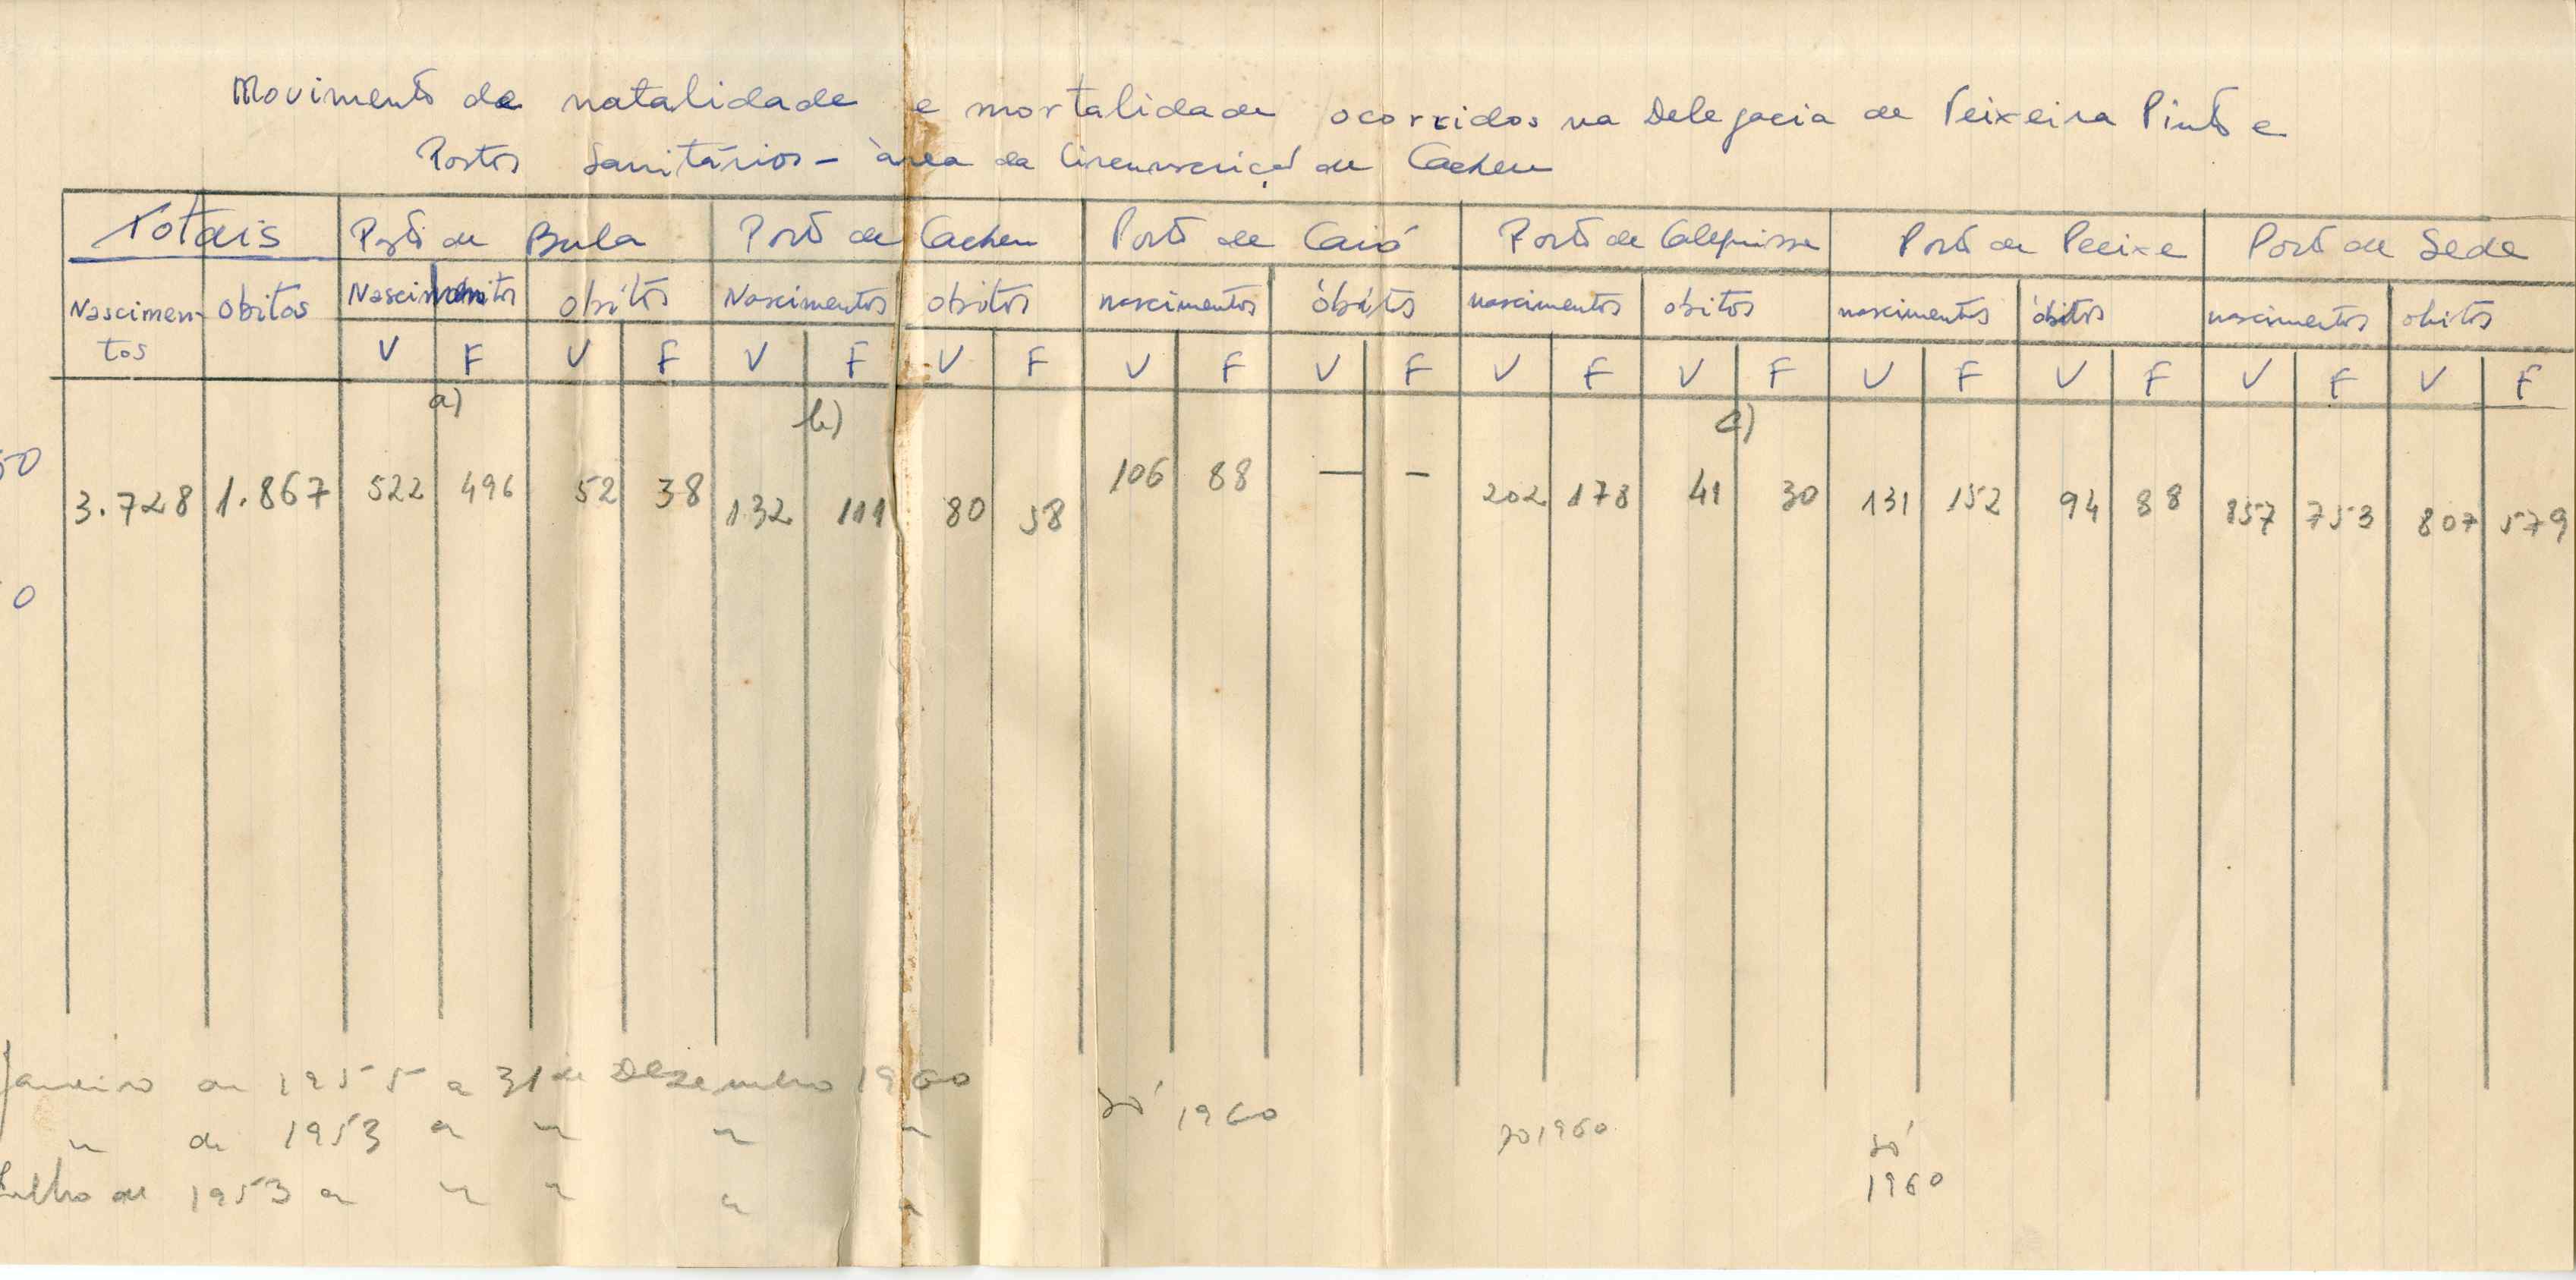 Movimento de natalidade e mortalidade ocorridos na Delegacia de Teixeira Pinto e
Postos Sanitários - àrea da Circunscrição de Cacheu
Totais Posto de Bula Posto de Cacheu Posto de Caió Posto de Calequisse Posto de Pecixe Posto de Sede
Nascimentos obitos Nascimentos obitos Nascimentos obitos nascimentos óbitos nascimentos obitos nascimentos óbitos nascimentos obitos
V F V F V F V F V F V F V F V F V F V F V F V F
a) b) c)
50
3.728 1.867 522 496 52 38 132 111 80 58 106 88 — - 202 178 41 30 131 152 94 88 857 753 807 579
0
Janeiro de 1955 a 31 de Dezembro 1960 só 1960
" de 1953 a " " " só 1960 só
1960
Julho de 1953 a " " " "